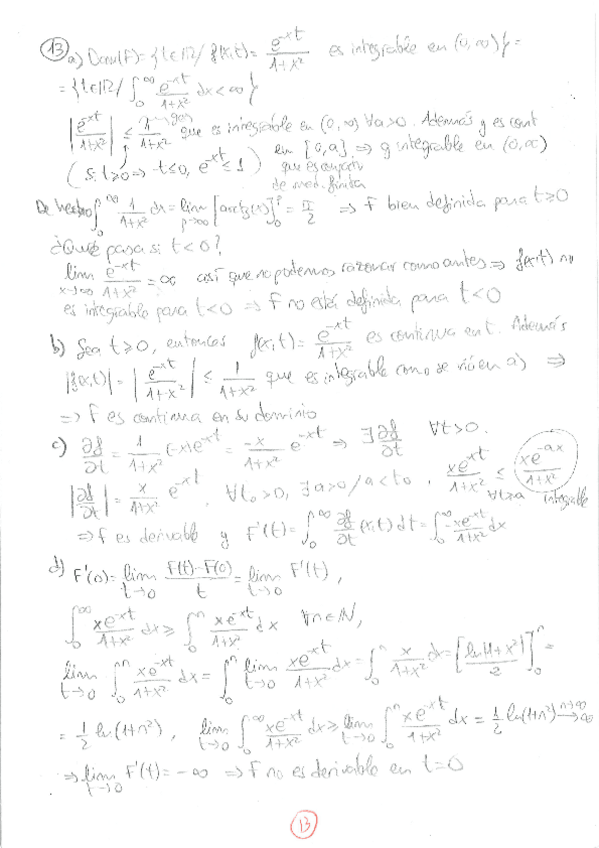 13 a) Dom(F) = {t∈ℝ / f(x,t) = e^{-xt}/(1+x²) es integrable en (0,∞)} =
= {t∈ℝ / ∫₀^∞ e^{-xt}/(1+x²) dx < ∞}
|e^{-xt}/(1+x²)| ≤ 1/(1+x²) que es integrable en (0,∞) ∀a>0. Además g es cont
(Si t≥0 → -t≤0, e^{-xt} ≤ 1) en [0,a] ⇒ g integrable en (0,∞)
que es
de med. finita
De hecho ∫₀^∞ 1/(1+x²) dx = lim_{p→∞} [arctg(x)]₀^p = π/2 ⇒ F bien definida para t≥0
¿Qué pasa si t<0?
lim_{x→∞} e^{-xt}/(1+x²) = ∞ así que no podemos razonar como antes ⇒ f(x,t) no
es integrable para t<0 ⇒ F no está definida para t<0
b) Sea t≥0, entonces f(x,t) = e^{-xt}/(1+x²) es continua en t. Además
|f(x,t)| = |e^{-xt}/(1+x²)| ≤ 1/(1+x²) que es integrable como se vió en a) ⇒
⇒ F es continua en su dominio
c) ∂f/∂t = 1/(1+x²) (-x)e^{-xt} = -x/(1+x²) e^{-xt} ⇒ ∃ ∂f/∂t ∀t>0.
|∂f/∂t| = x/(1+x²) e^{-xt}. ∀t₀>0, ∃a>0 / a<t₀, xe^{-xt}/(1+x²) ≤ xe^{-ax}/(1+x²) ∀t≥a integrable
⇒ F es derivable y F'(t) = ∫₀^∞ ∂f/∂t (x,t) dt = ∫₀^∞ -xe^{-xt}/(1+x²) dx
d) F'(0) = lim_{t→0} (F(t)-F(0))/t = lim_{t→0} F'(t),
∫₀^∞ xe^{-xt}/(1+x²) dx ≥ ∫₀^n xe^{-xt}/(1+x²) dx ∀n∈ℕ,
lim_{t→0} ∫₀^n xe^{-xt}/(1+x²) dx = ∫₀^n lim_{t→0} xe^{-xt}/(1+x²) dx = ∫₀^n x/(1+x²) dx = [ln|1+x²|/2]₀^n =
= 1/2 ln(1+n²), lim_{t→0} ∫₀^∞ xe^{-xt}/(1+x²) dx ≥ lim_{t→0} ∫₀^n xe^{-xt}/(1+x²) dx = 1/2 ln(1+n²) →^{n→∞} ∞
⇒ lim_{t→0} F'(t) = -∞ ⇒ F no es derivable en t=0
13